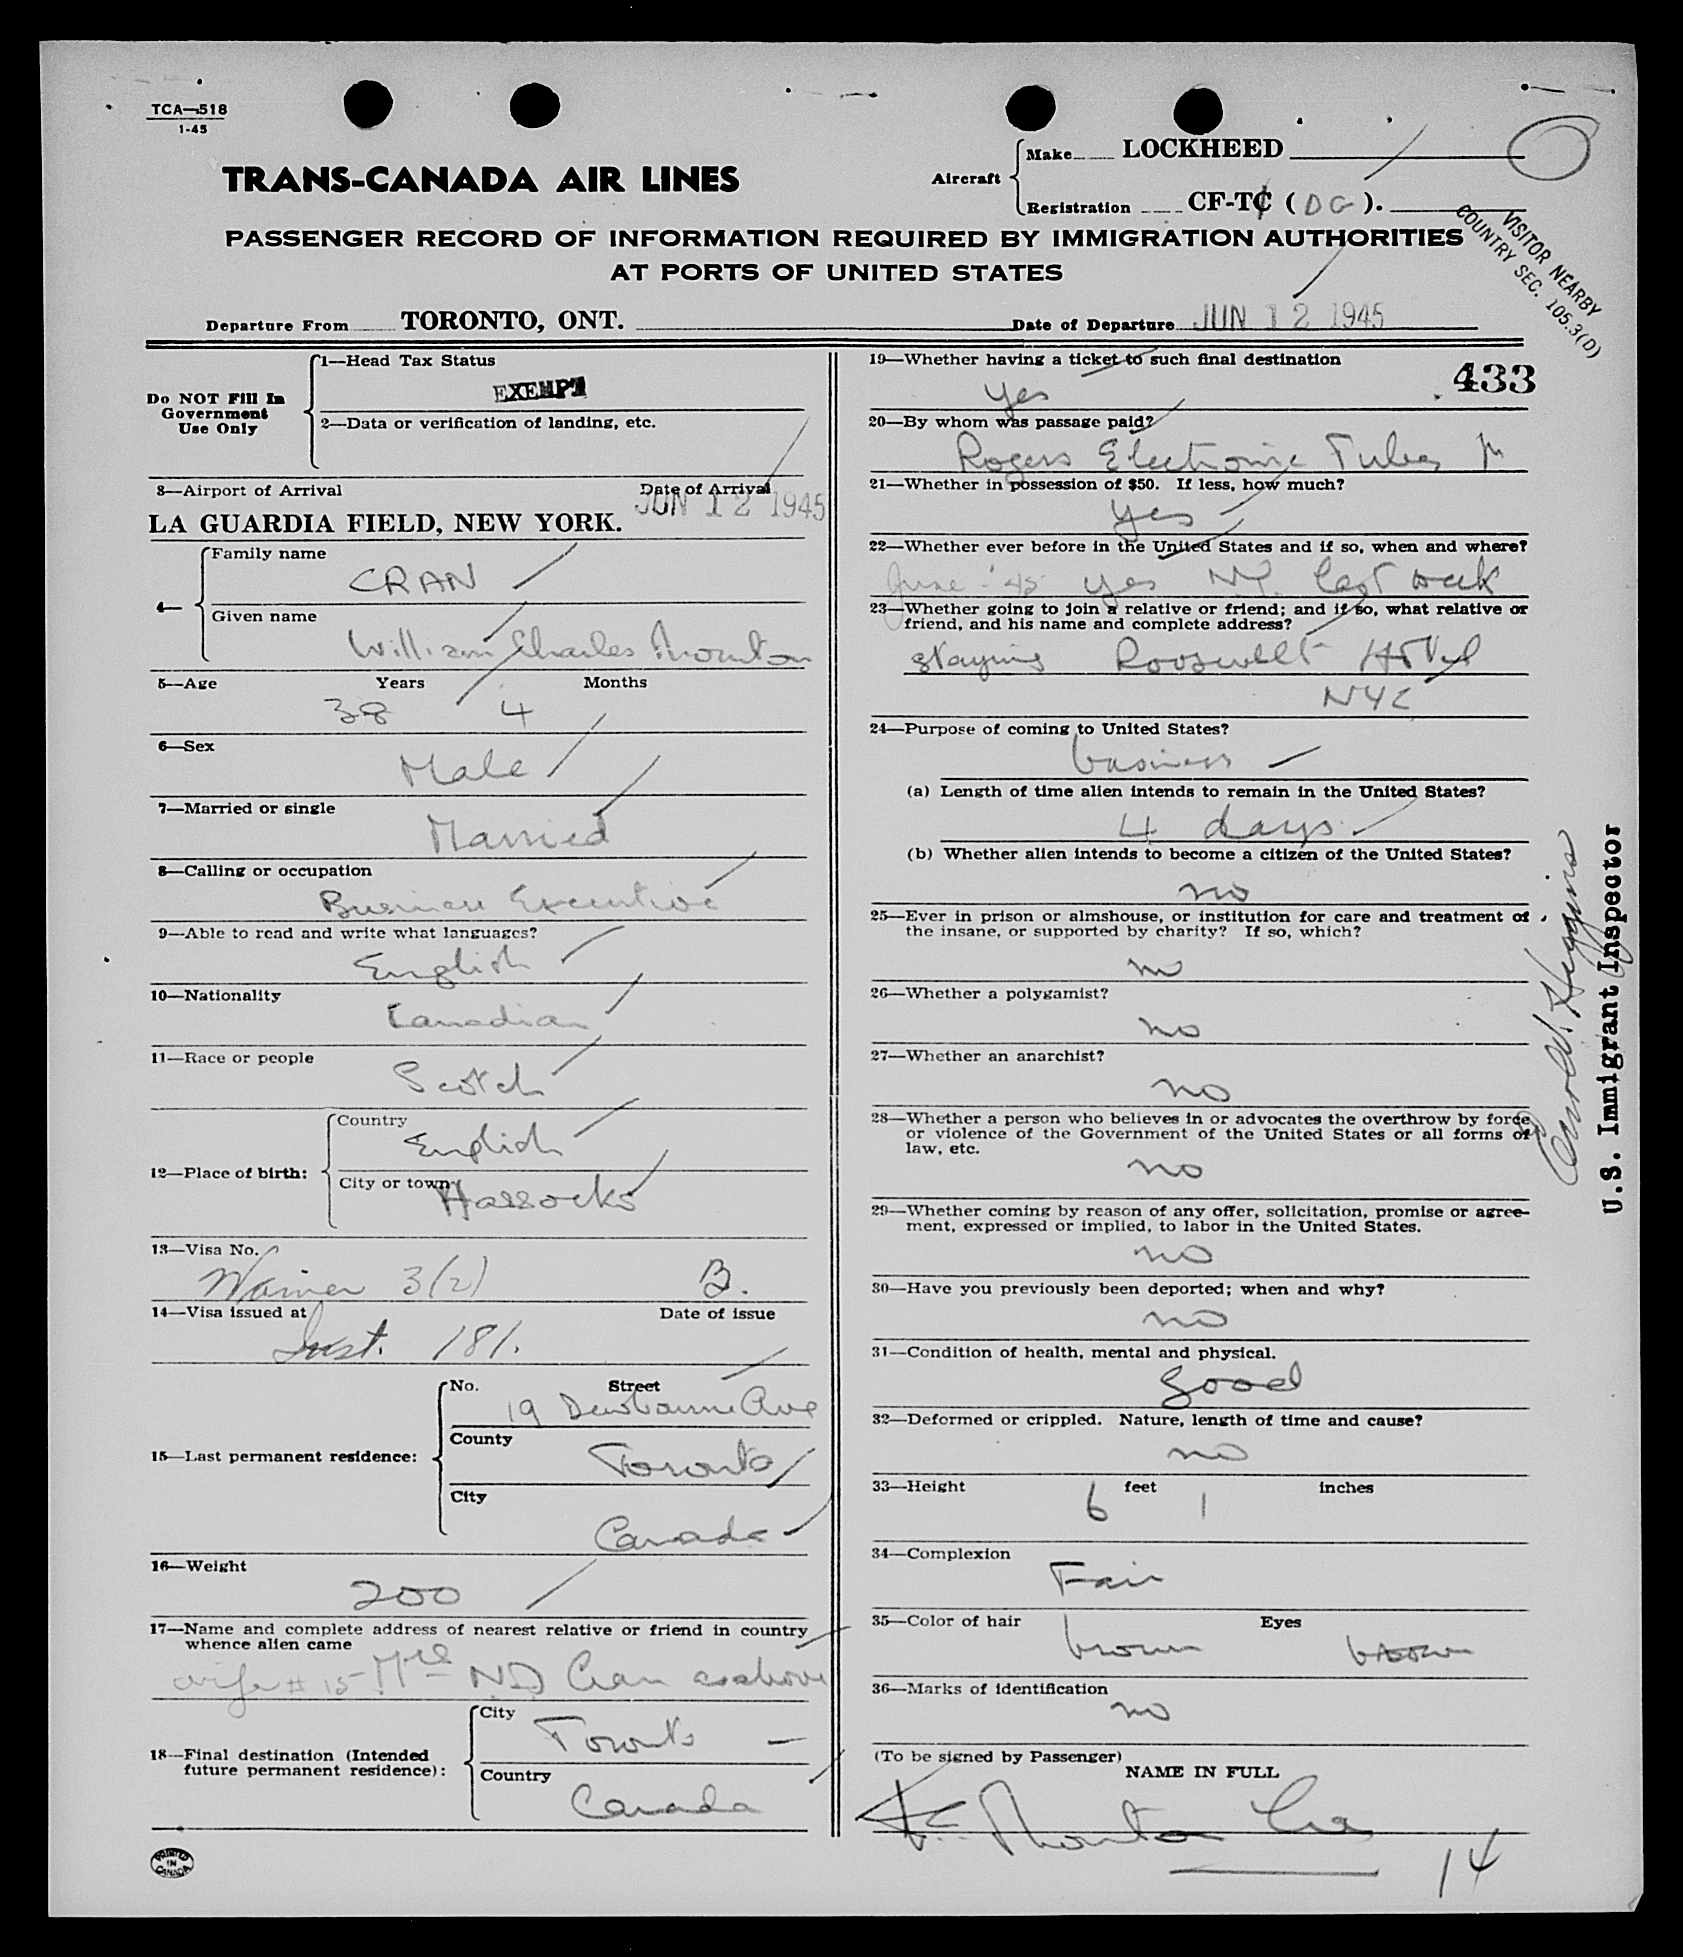 TCA—518
1-45
TRANS-CANADA AIR LINES
Aircraft
Make LOCKHEED
Registration CF-TC ( DG ).
PASSENGER RECORD OF INFORMATION REQUIRED BY IMMIGRATION AUTHORITIES
AT PORTS OF UNITED STATES
VISITOR NEARBY
COUNTRY SEC. 105.3(D)
Departure From TORONTO, ONT. Date of Departure JUN 12 1945
433
Do NOT Fill In
Government
Use Only
1—Head Tax Status
EXEMPT
2—Data or verification of landing, etc.
3—Airport of Arrival Date of Arrival
LA GUARDIA FIELD, NEW YORK. JUN 12 1945
4—
Family name
CRAN
Given name
William Charles Thornton
5—Age Years Months
38 4
6—Sex
Male
7—Married or single
Married
8—Calling or occupation
Business Executive
9—Able to read and write what languages?
English
10—Nationality
Canadian
11—Race or people
Scotch
12—Place of birth:
Country
English
City or town
Hassocks
13—Visa No.
Waiver 3(2) B.
14—Visa issued at Date of issue
Inst. 181.
15—Last permanent residence:
No. Street
19 Dewbourne Ave
County
Toronto
City
Canada
16—Weight
200
17—Name and complete address of nearest relative or friend in country
whence alien came
wife # 15 Mrs ND Cran as above
18—Final destination (Intended
future permanent residence):
City
Toronto
Country
Canada
PRINTED
IN
CANADA
19—Whether having a ticket to such final destination
Yes
20—By whom was passage paid?
Rogers Electronic Tubes
21—Whether in possession of $50. If less, how much?
Yes
22—Whether ever before in the United States and if so, when and where?
June - '45 yes NY. last week
23—Whether going to join a relative or friend; and if so, what relative or
friend, and his name and complete address?
staying Roosevelt Hotel
NYC
24—Purpose of coming to United States?
business
(a) Length of time alien intends to remain in the United States?
4 days
(b) Whether alien intends to become a citizen of the United States?
no
25—Ever in prison or almshouse, or institution for care and treatment of
the insane, or supported by charity? If so, which?
no
26—Whether a polygamist?
no
27—Whether an anarchist?
no
28—Whether a person who believes in or advocates the overthrow by force
or violence of the Government of the United States or all forms of
law, etc.
no
29—Whether coming by reason of any offer, solicitation, promise or agree-
ment, expressed or implied, to labor in the United States.
no
30—Have you previously been deported; when and why?
no
31—Condition of health, mental and physical.
good
32—Deformed or crippled. Nature, length of time and cause?
no
33—Height feet inches
6 1
34—Complexion
Fair
35—Color of hair Eyes
brown brown
36—Marks of identification
no
(To be signed by Passenger)
NAME IN FULL
Thornton Cran
14
Higgins
U.S. Immigrant Inspector